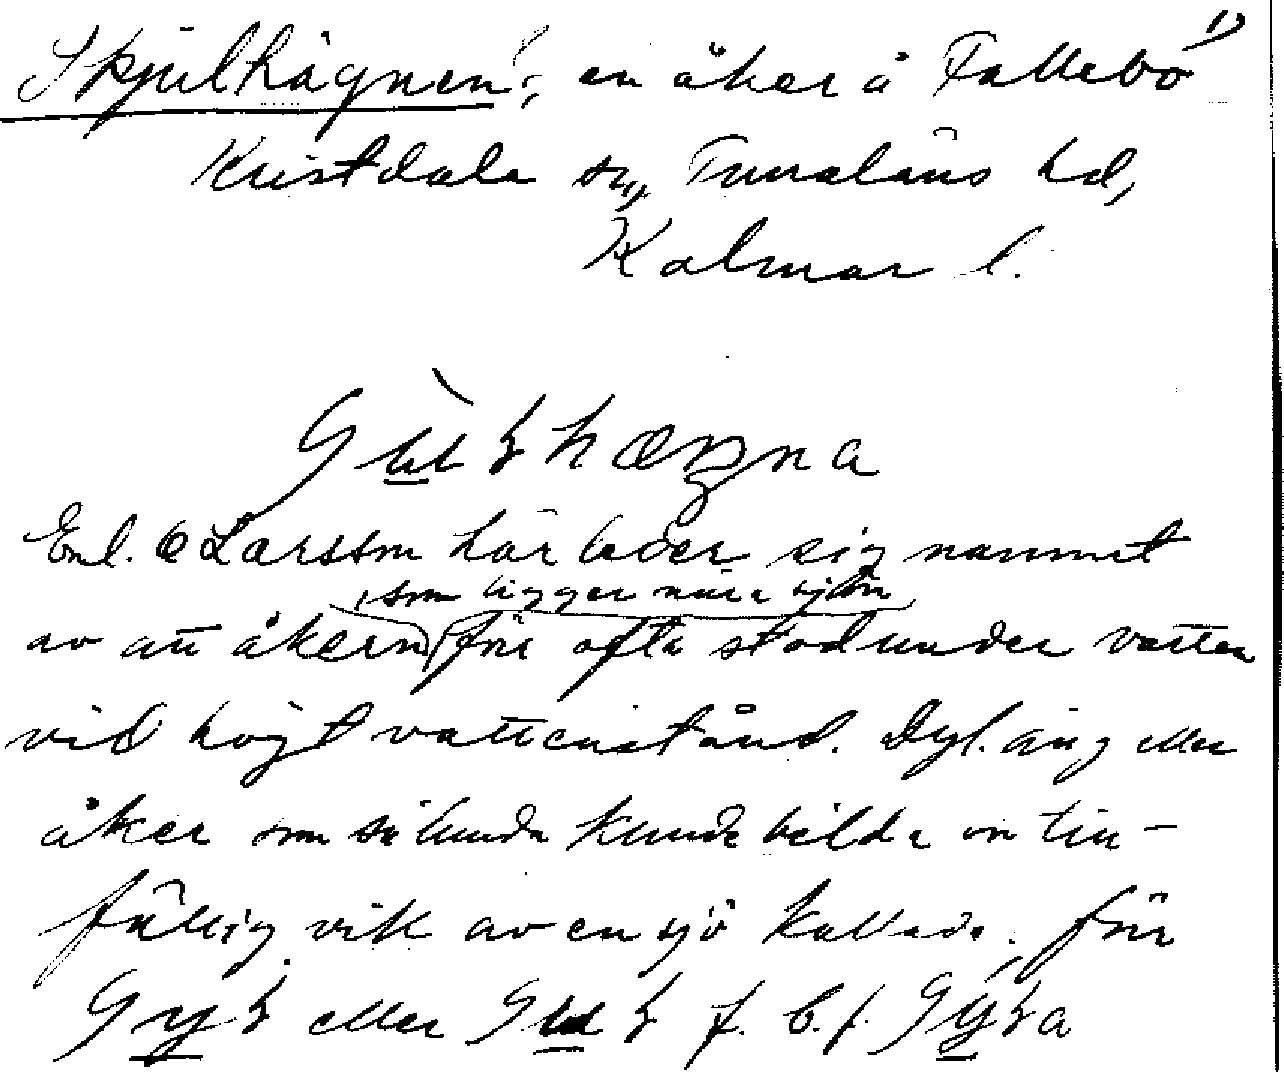 1)
Skjulhägnen, en åker å Fallebo
Kristdala sn, Tunaläns hd,
Kalmar l.
Enl. C Larsson härleder sig namnet
, som ligger nära sjön,
av att åkern förr ofta stod under vatten
vid högt vattenstånd. Dyl. äng eller
åker som sålunda kunde bilda en till-
fällig vik av en sjö kallades förr
eller f. b.f.